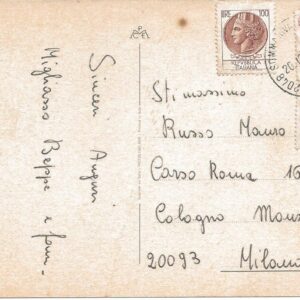 Sinceri Auguri
Migliasso Beppe e fam.
LIRE 100
REPUBBLICA
ITALIANA
Stimassimo
Russo Mauro
Corso Roma 16
Cologno Mons
20093 Milano